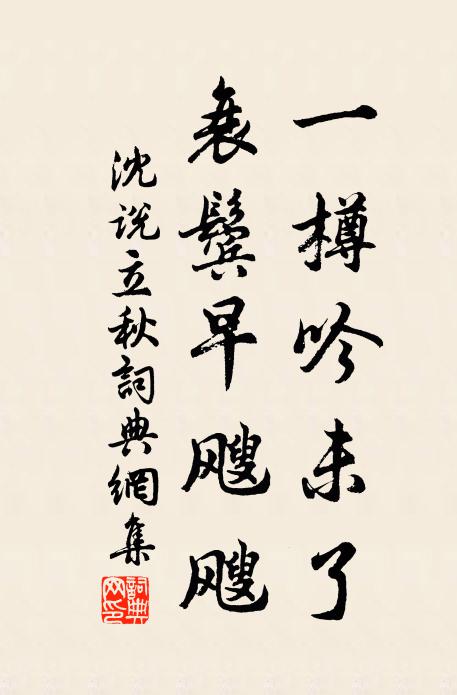 一樽吟未了
衰鬓早飕飕
沈说立秋詞典網集
詞典網印